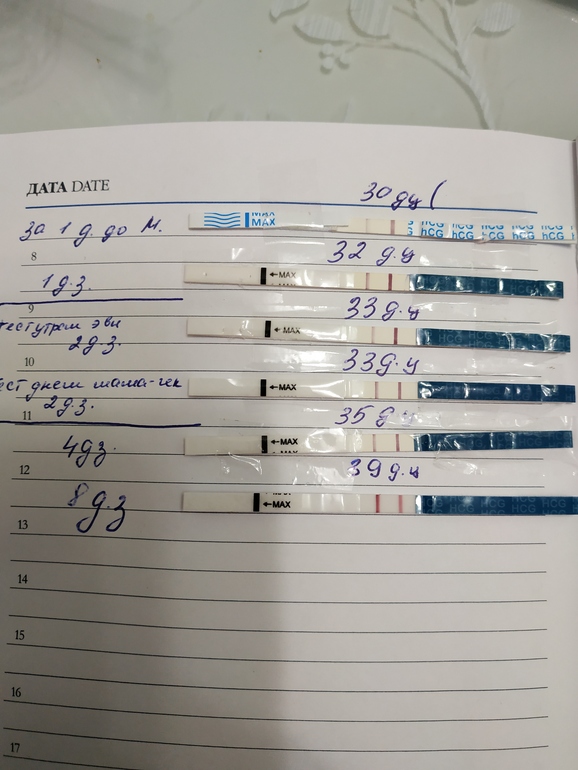 ДАТА DATE
30 дц (
за 1 д. до М.
MAX
MAX
hCG hCG hCG hCG hCG
8
32 д.ц
1 д.з.
←MAX
9
33 д.ц
тест утром эви
2 д.з.
←MAX
10
33 д.ц
тест днем мама-чек
←MAX
11
2 д.з.
35 д.ц
4 д з.
←MAX
12
39 д.ц
8 д.з
←MAX
13
14
15
16
17